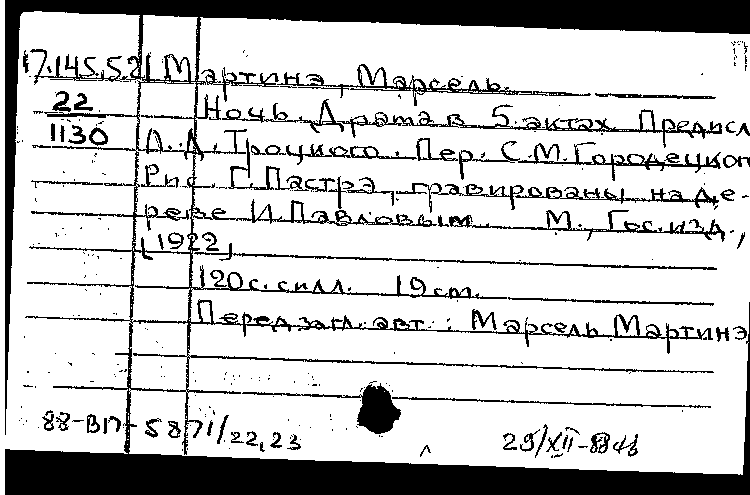 17.145.52 Мартинэ, Марсель.
22 Ночь. Драма в 5 актах Предисл
1130 Л. Д. Троцкого. Пер. С.М.Городецког
Рис. Г. Пастрэ, гравированы на де-
реве И.Павловым. М., Гос.изд.,
[1922]
120 с. с илл. 19 см.
Перед загл. авт.: Марсель Мартинэ
88-ВП-5871/22,23